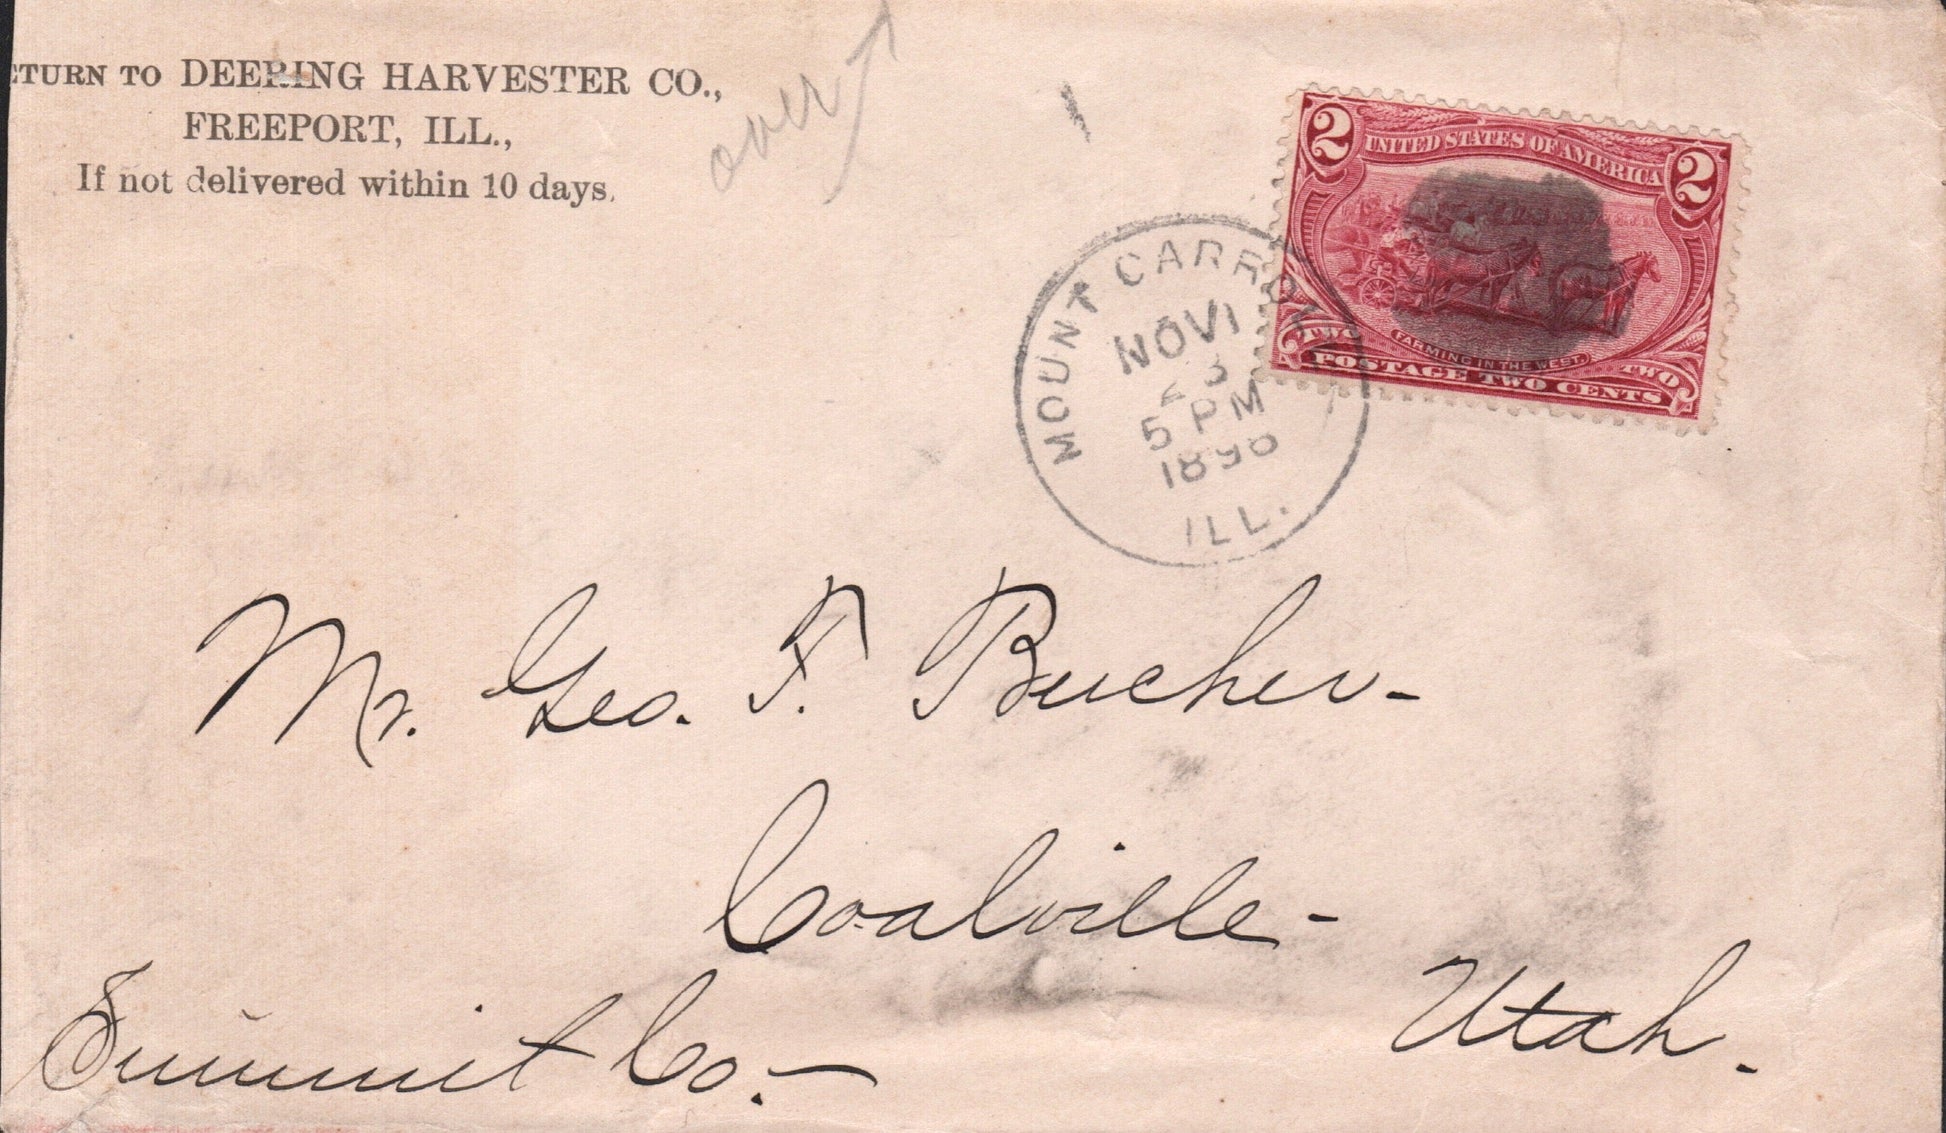 ETURN TO DEERING HARVESTER CO.,
FREEPORT, ILL.,
If not delivered within 10 days.
over
2 UNITED STATES OF AMERICA 2
FARMING IN THE WEST.
TWO POSTAGE TWO CENTS TWO
MOUNT CARROLL
NOV
23
5 PM
1898
ILL.
Mr. Geo. F. Bucher-
Coalville-
Summit Co.- Utah.